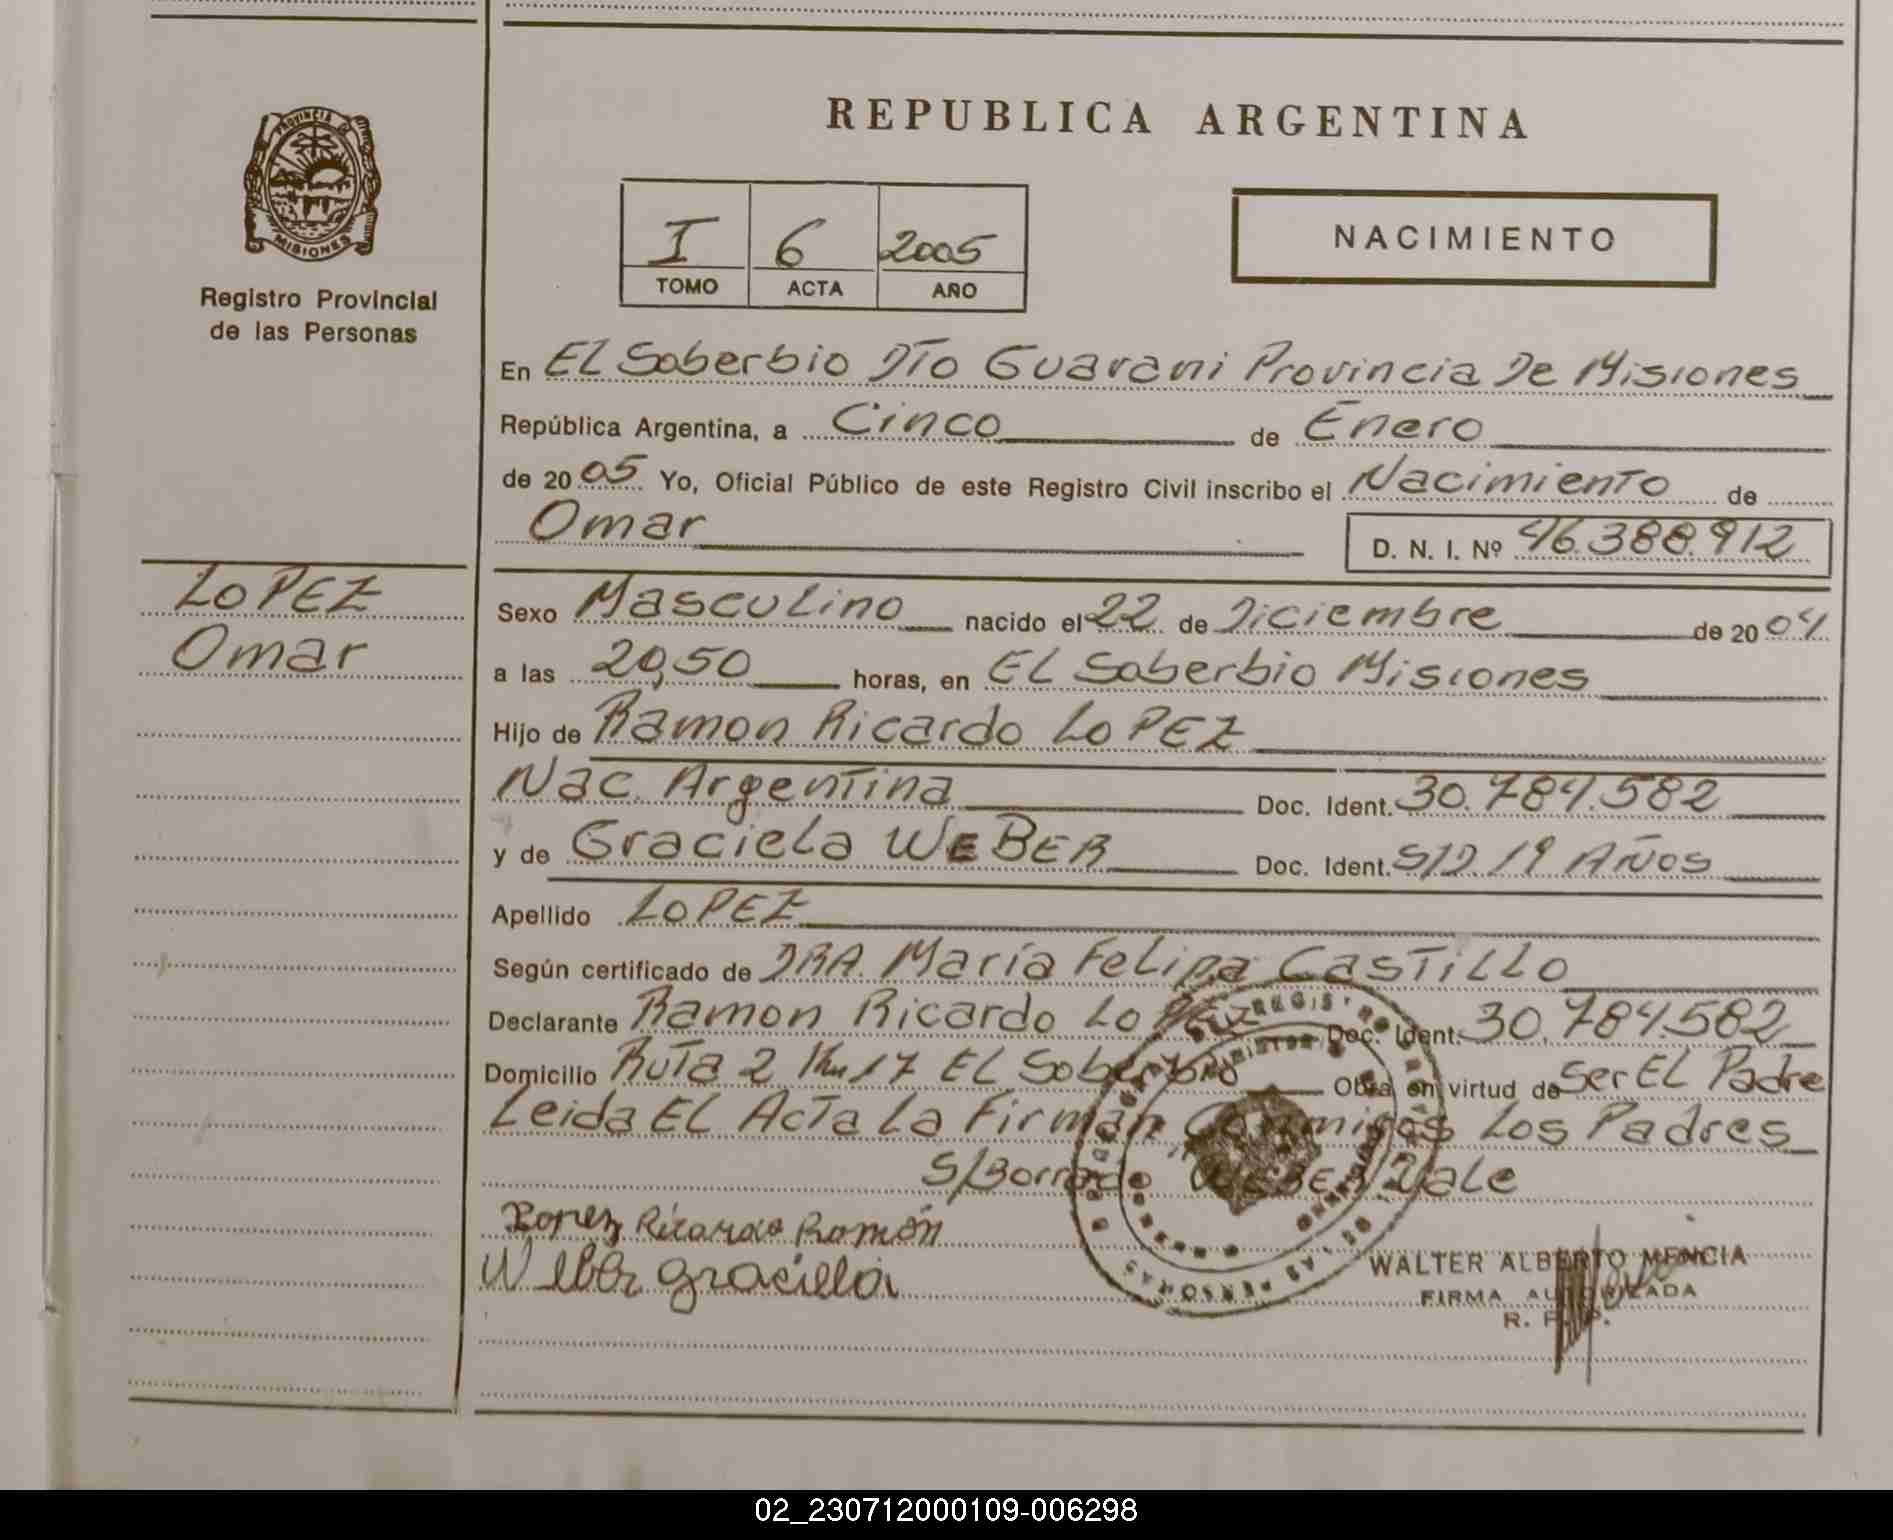 PROVINCIA DE
MISIONES
Registro Provincial
de las Personas
LOPEZ
Omar
REPUBLICA ARGENTINA
I 6 2005
TOMO ACTA AÑO
NACIMIENTO
En EL Soberbio DTO Guarani Provincia De Misiones
República Argentina, a Cinco de Enero
de 2005 Yo, Oficial Público de este Registro Civil inscribo el Nacimiento de
Omar D. N. I. Nº 46.388.912
Sexo Masculino nacido el 22 de Diciembre de 2004
a las 20,50 horas, en EL Soberbio Misiones
Hijo de Ramon Ricardo LOPEZ
Nac. Argentina Doc. Ident. 30.784.582
y de Graciela WEBER Doc. Ident. S/D 19 AÑOS
Apellido LOPEZ
Según certificado de DRA. María Felipa CASTILLO
Declarante Ramon Ricardo LOPEZ Doc. Ident. 30.784.582
Domicilio RUTA 2 Km 17 EL Soberbio Obra en virtud de Ser EL Padre
Leida EL ACTA La Firman Conmigos Los Padres
S/Borrado WEBER Vale
Lopez Ricardo Ramón
Weber graciela
WALTER ALBERTO MENCIA
FIRMA AUTORIZADA
R. P. P.
02_230712000109-006298